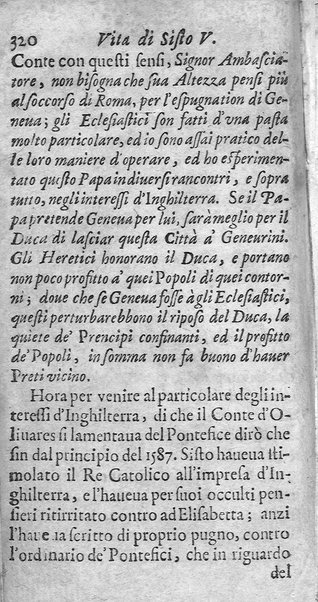 320 Vita di Sisto V.
Conte con questi sensi, Signor Ambascia-
tore, non bisogna che sua Altezza pensi più
al soccorso di Roma, per l'espugnation di Ge-
neua; gli Eclesiastici son fatti d'vna pasta
molto particolare, ed io sono assai pratico del-
le loro maniere d'operare, ed ho esperimen-
tato questo Papa in diuersi rancontri, e sopra
tutto, negli interessi d'Inghilterra. Se il Pa-
pa pretende Geneua per lui, sarà meglio per il
Duca di lasciar questa Città à Geneurini.
Gli Heretici honorano il Duca, e portano
non poco profitto a' quei Popoli di quei contor-
ni; doue che se Geneua fosse à gli Eclesiastici,
questi perturbarebbono il riposo del Duca, la
quiete de' Prencipi confinanti, ed il profitto
de' Popoli, in somma non fa buono d'hauer
Preti vicino.
Hora per venire al particolare degli in-
teressi d'Inghilterra, di che il Conte d'O-
liuares si lamentaua del Pontefice dirò che
sin dal principio del 1587. Sisto haueua sti-
molato il Re Catolico all'impresa d'In-
ghilterra, e l'haueua per suoi occulti pen-
sieri ritirritato contro ad Elisabetta; anzi
l'haueua scritto di proprio pugno, contro
l'ordinario de' Pontefici, che in riguardo
del